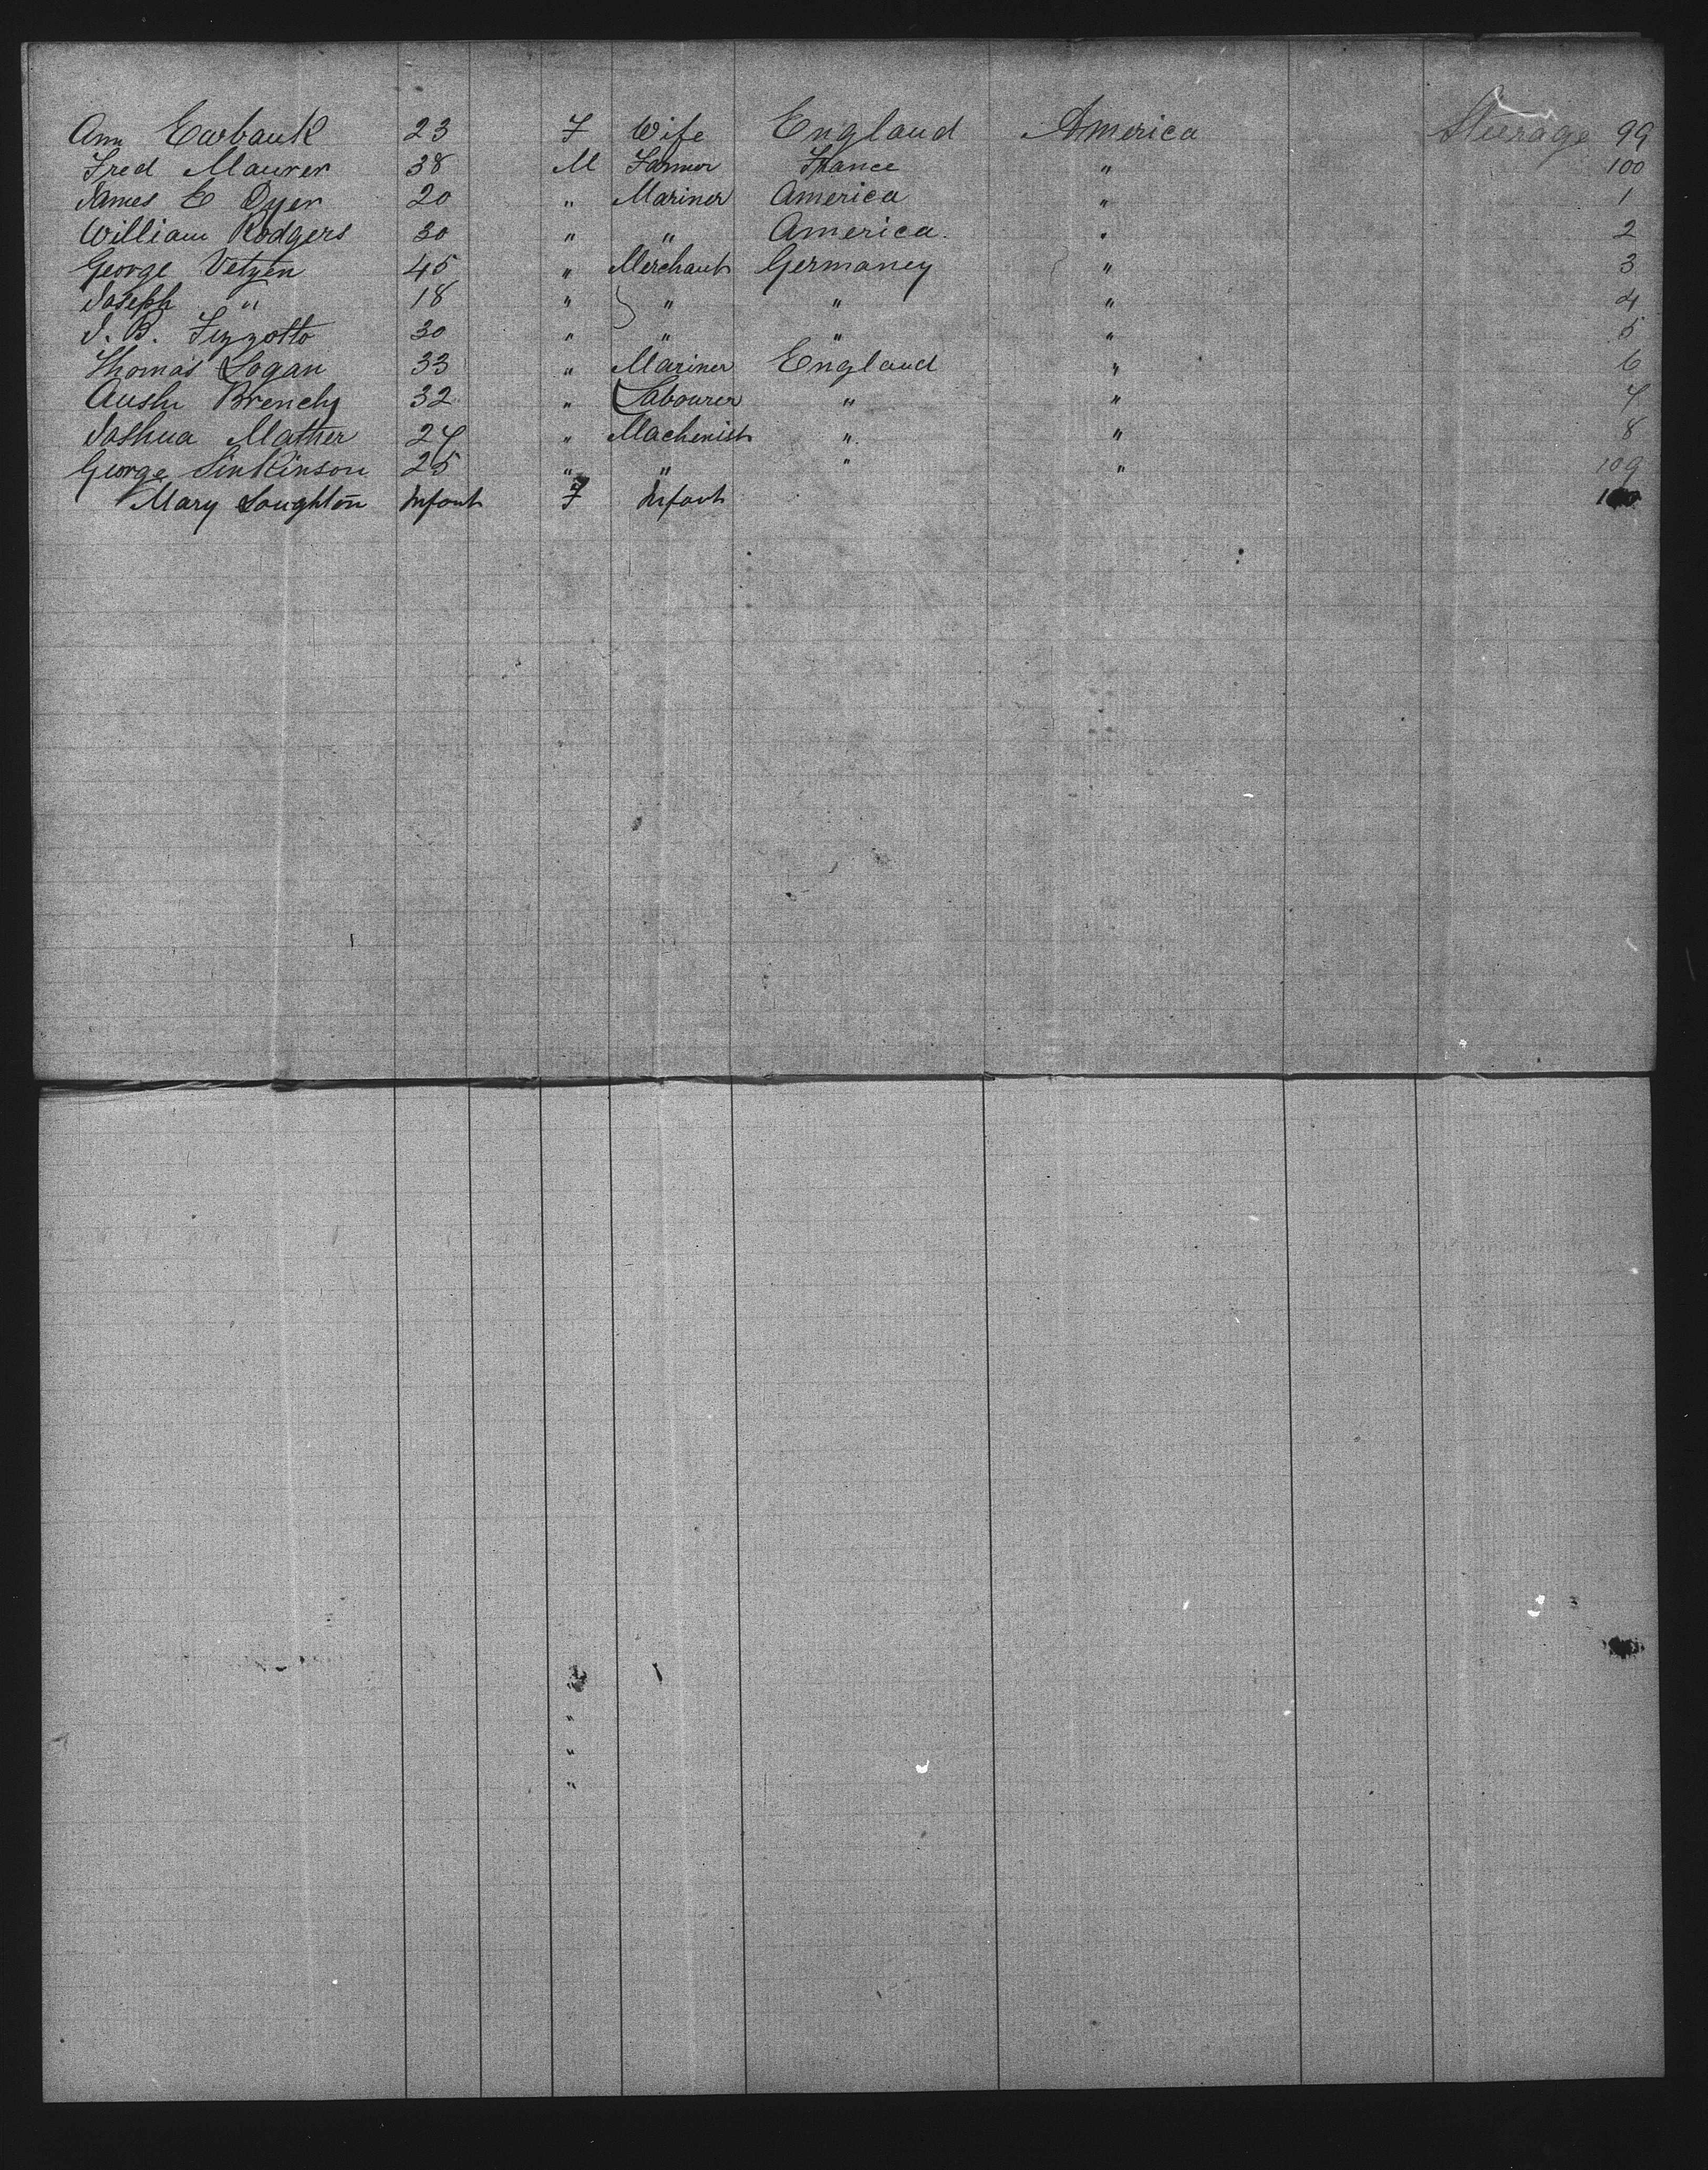 Ann Ewbank 23 F Wife England America Steerage 99
Fred Maurer 38 M Farmer France " 100
James E Dyer 20 " Mariner America " 1
William Rodgers 30 " " America. " 2
George Vetzen 45 " Merchant Germaney " 3
Joseph " 18 " " " " 4
J. B. 30 " " " " 5
Thomas Logan 33 " Mariner England " 6
32 " Labourer " " 7
Joshua Mather 27 " Machenist " " 8
George Sinkinson 25 " " " " 109
Mary Loughton Infant F Infant
"
"
"
"